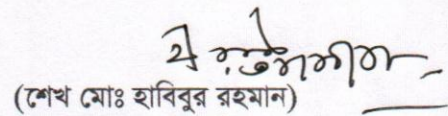 (শেখ মোঃ হাবিবুর রহমান)